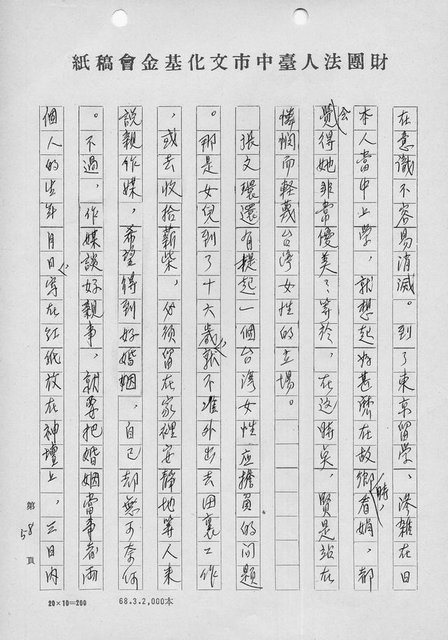 財團法人臺中市文化基金會稿紙
在意識不容易消滅。到了東京留學、滲雜在日
本人當中上學，就想起將甚麼在故鄉看娟時，都
會覺得她非常優美了。等於，在這時奌，賢是站在
憐憫而輕蔑台灣女性的立場。
張文環還有提起一個台灣女性應擔負的问題
。那是女兒到了十六歲就不准外出去田裏工作
，或去收拾薪柴，必須留在家裡安靜地等人來
說親作媒，希望得到好婚姻，自己却無可奈何
。不過，作媒談好親事，就要把婚姻當事者兩
個人的生年月日寫在紅低放在神壇上，三日内
第58頁
20×10=200
68.3.2,000本